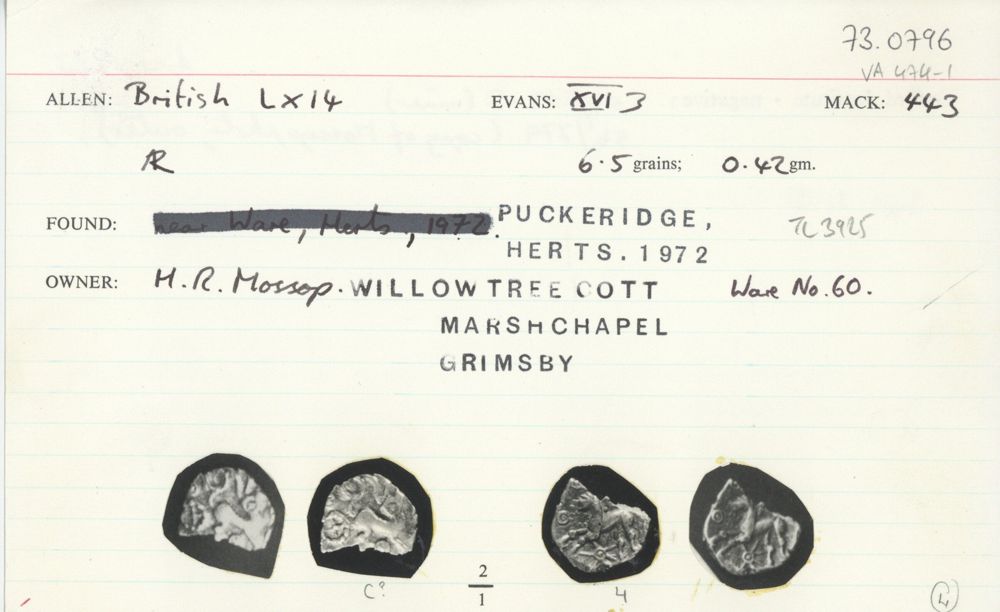 73.0796
VA 474-1
ALLEN: British LX14 EVANS: XVI 3 MACK: 443
AR 6.5 grains; 0.42 gm.
FOUND: near Ware, Herts, 1972. PUCKERIDGE, TL 3925
HERTS. 1972
OWNER: H.R. Mossop. WILLOW TREE COTT Ware No. 60.
MARSHCHAPEL
GRIMSBY
C? 2/1 4 4